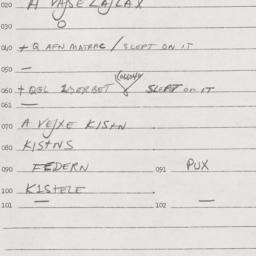 020 A VAJSE LAJLAX
030 O
040 + Q AFN MATRAC / SLEPT ON IT
050 —
060 + QGL SLEPT ON IT
061 —
070 A VEJXE KIS+N
080 KIS+NS
090 FEDERN 091 PUX
100 KIS+ELE
101 — 102 —